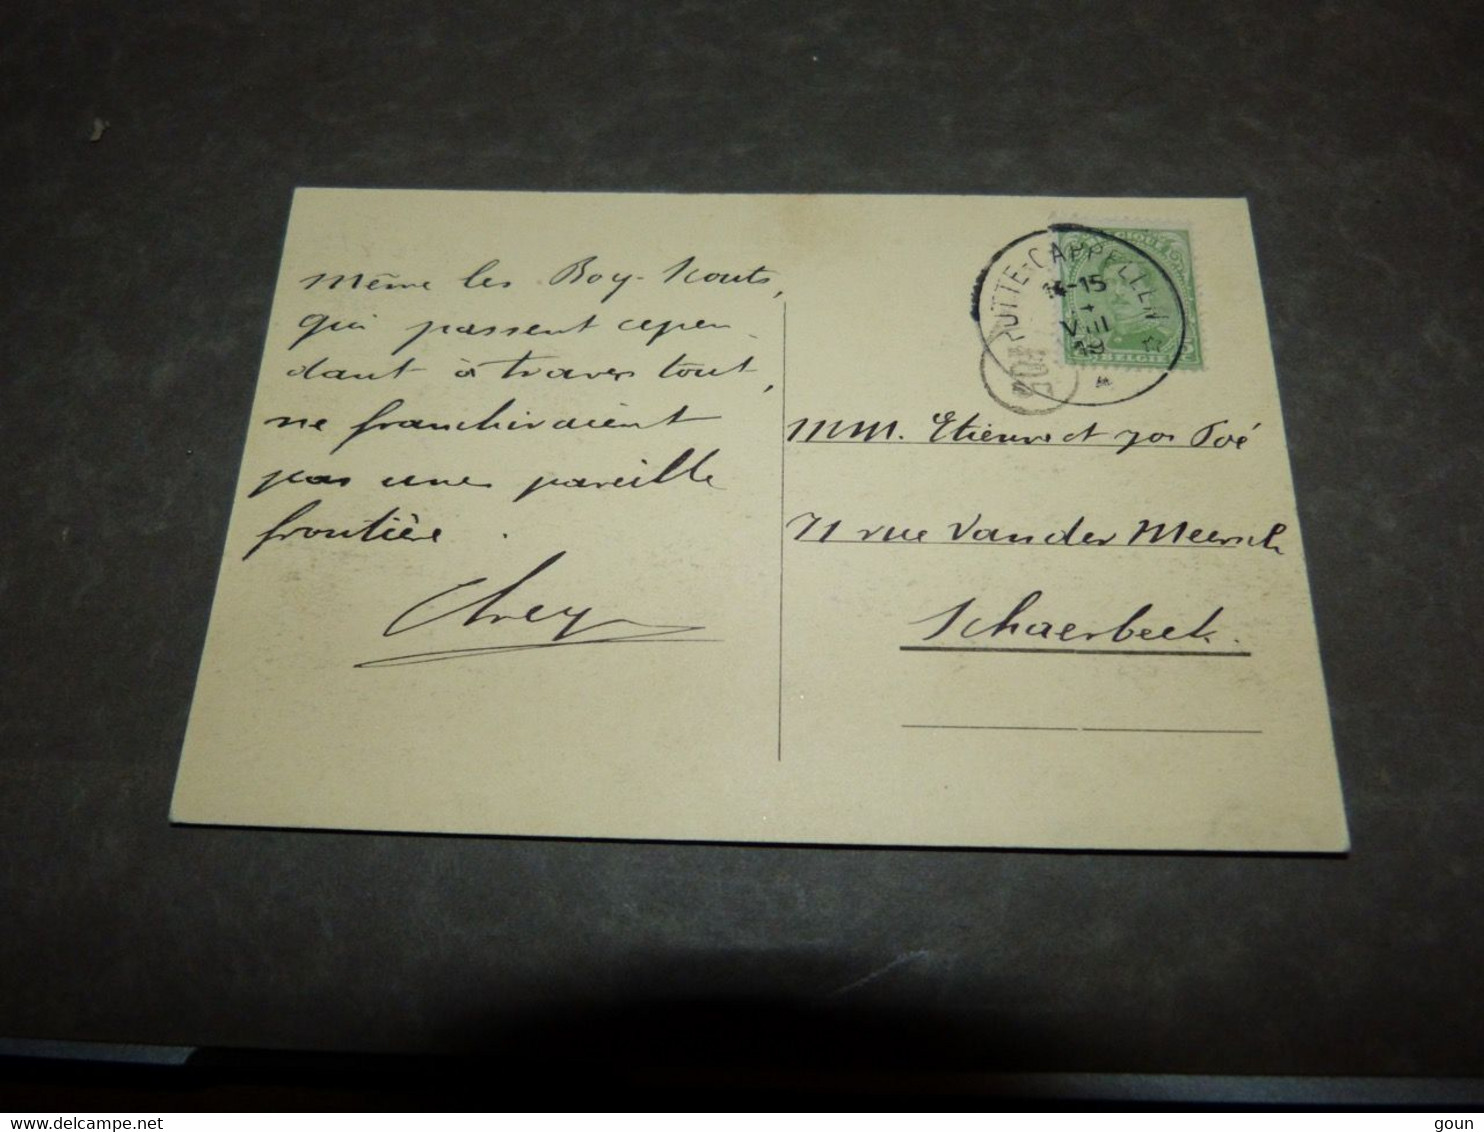 même les Boy-Scouts,
qui passent cepen
dant à travers tout,
ne franchiraient
pas une pareille
frontière.
BELGIQUE
PUTTE-CAPPELLEN
14-15
VIII
19
BELGIE
MM. Etienne et Jos Poé
71 rue Van der Meersch
Schaerbeek.
delcampe.net
goun